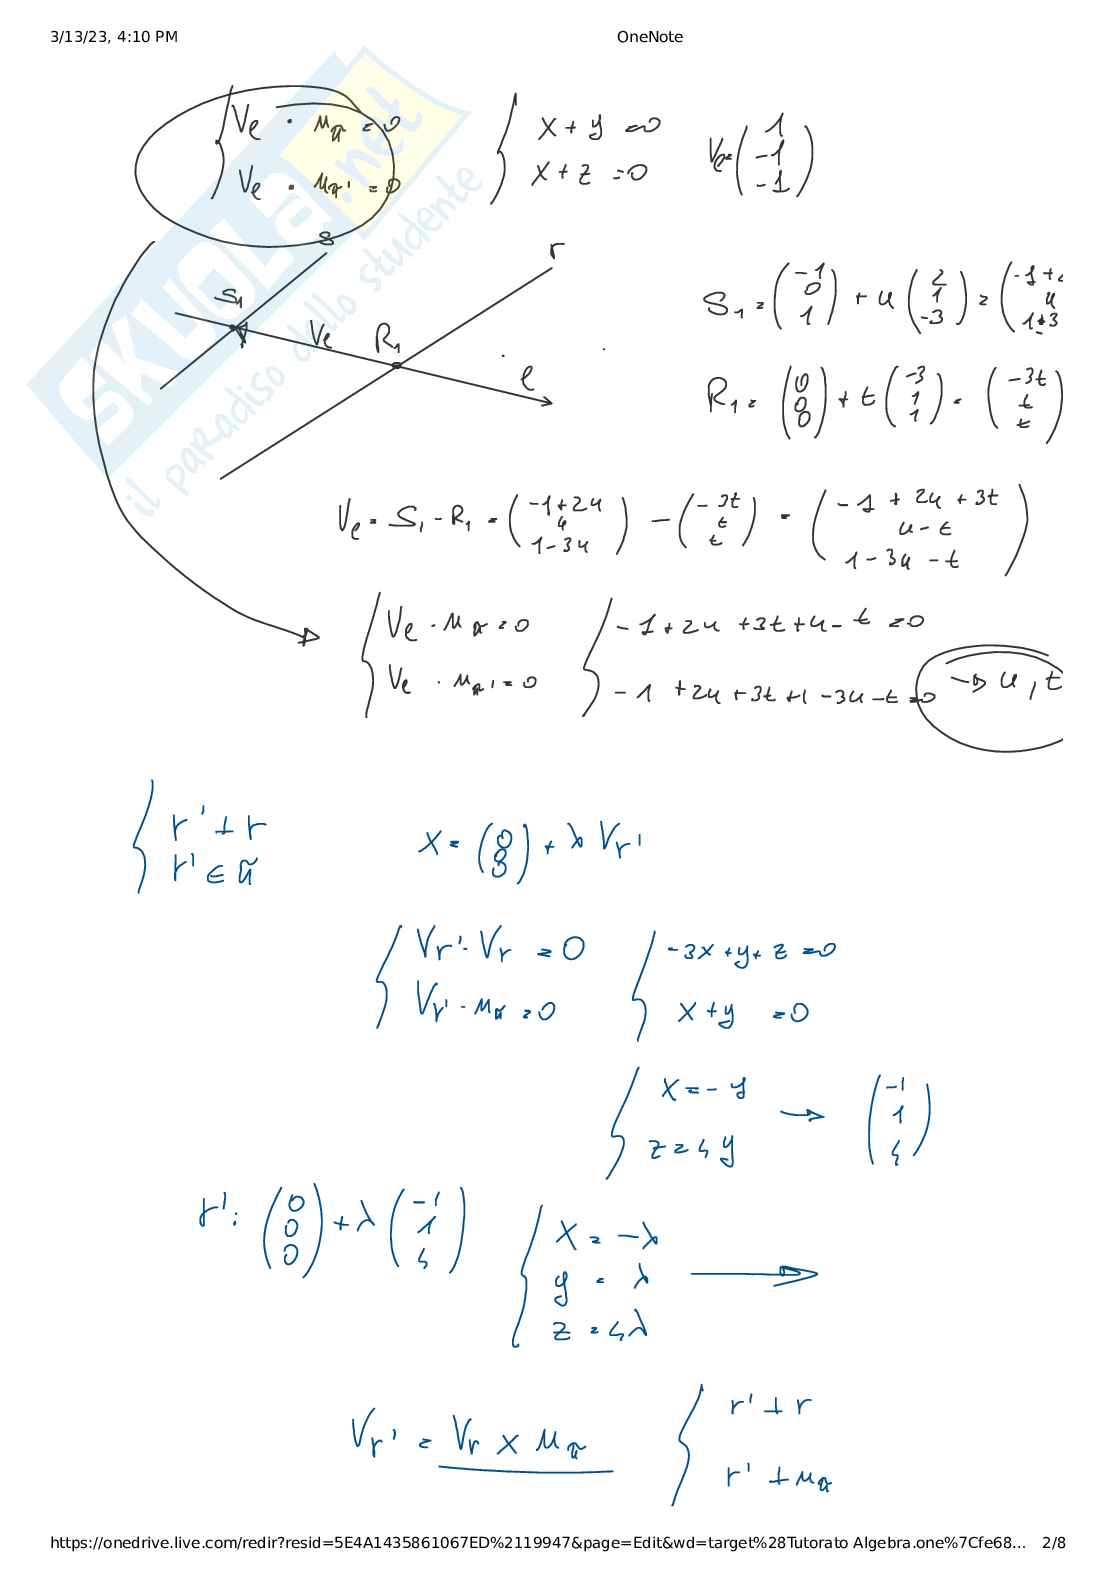 3/13/23, 4:10 PM OneNote
Ve · μπ = 0
Ve · μπ' = 0
x + y = 0
x + z = 0
Ve = (1 -1 -1)
SKUOLA.net
il paradiso dello studente
s
r
S₁
Ve
R₁
l
S₁ = (-1 0 1) + u (2 1 -3) = (-1+2 u 1+3
R₁ = (0 0 0) + t (-3 1 1) = (-3t t t)
Ve = S₁ - R₁ = (-1+2u u 1-3u) - (-3t t t) = (-1+2u+3t u-t 1-3u-t)
Ve · μπ = 0
-1+2u+3t+u-t = 0
Ve · μπ' = 0
-1+2u+3t+1-3u-t = 0 → u, t
r' ⊥ r
r' ∈ π
x = (0 0 0) + λ Vr'
Vr' · Vr = 0
-3x+y+z = 0
Vr' · μπ = 0
x+y = 0
x = -y
z = 4y
→ (-1 1 4)
r': (0 0 0) + λ (-1 1 4)
x = -λ
y = λ
z = 4λ
→
Vr' = Vr × μπ
r' ⊥ r
r' ⊥ μπ
https://onedrive.live.com/redir?resid=5E4A1435861067ED%2119947&page=Edit&wd=target%28Tutorato Algebra.one%7Cfe68... 2/8